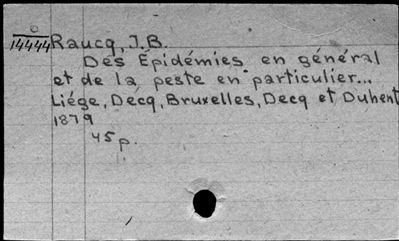 14444 Raucq, J.B.
Des Épidémies en général
et de la peste en particulier...
Liége, Decq, Bruxelles, Decq et Duhent
1879
45p.